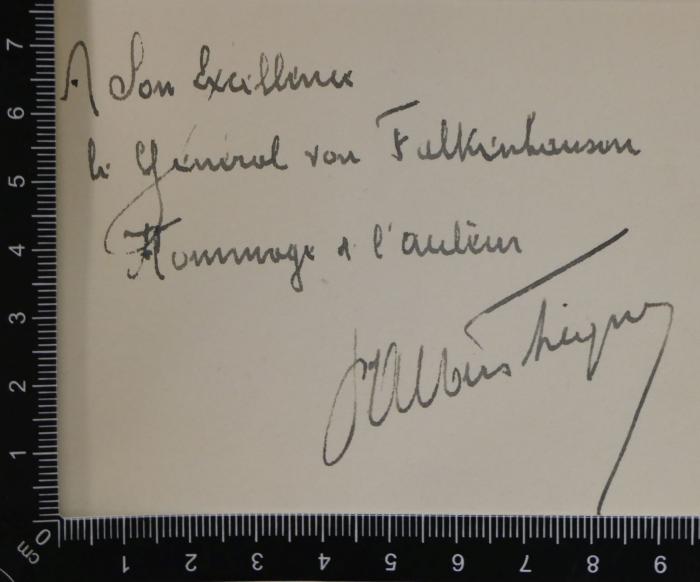 A Son Excellence
le Général von Falkenhausen
Hommage de l'auteur
7
6
5
4
3
2
1
0
cm
1
2
3
4
5
6
7
8
9